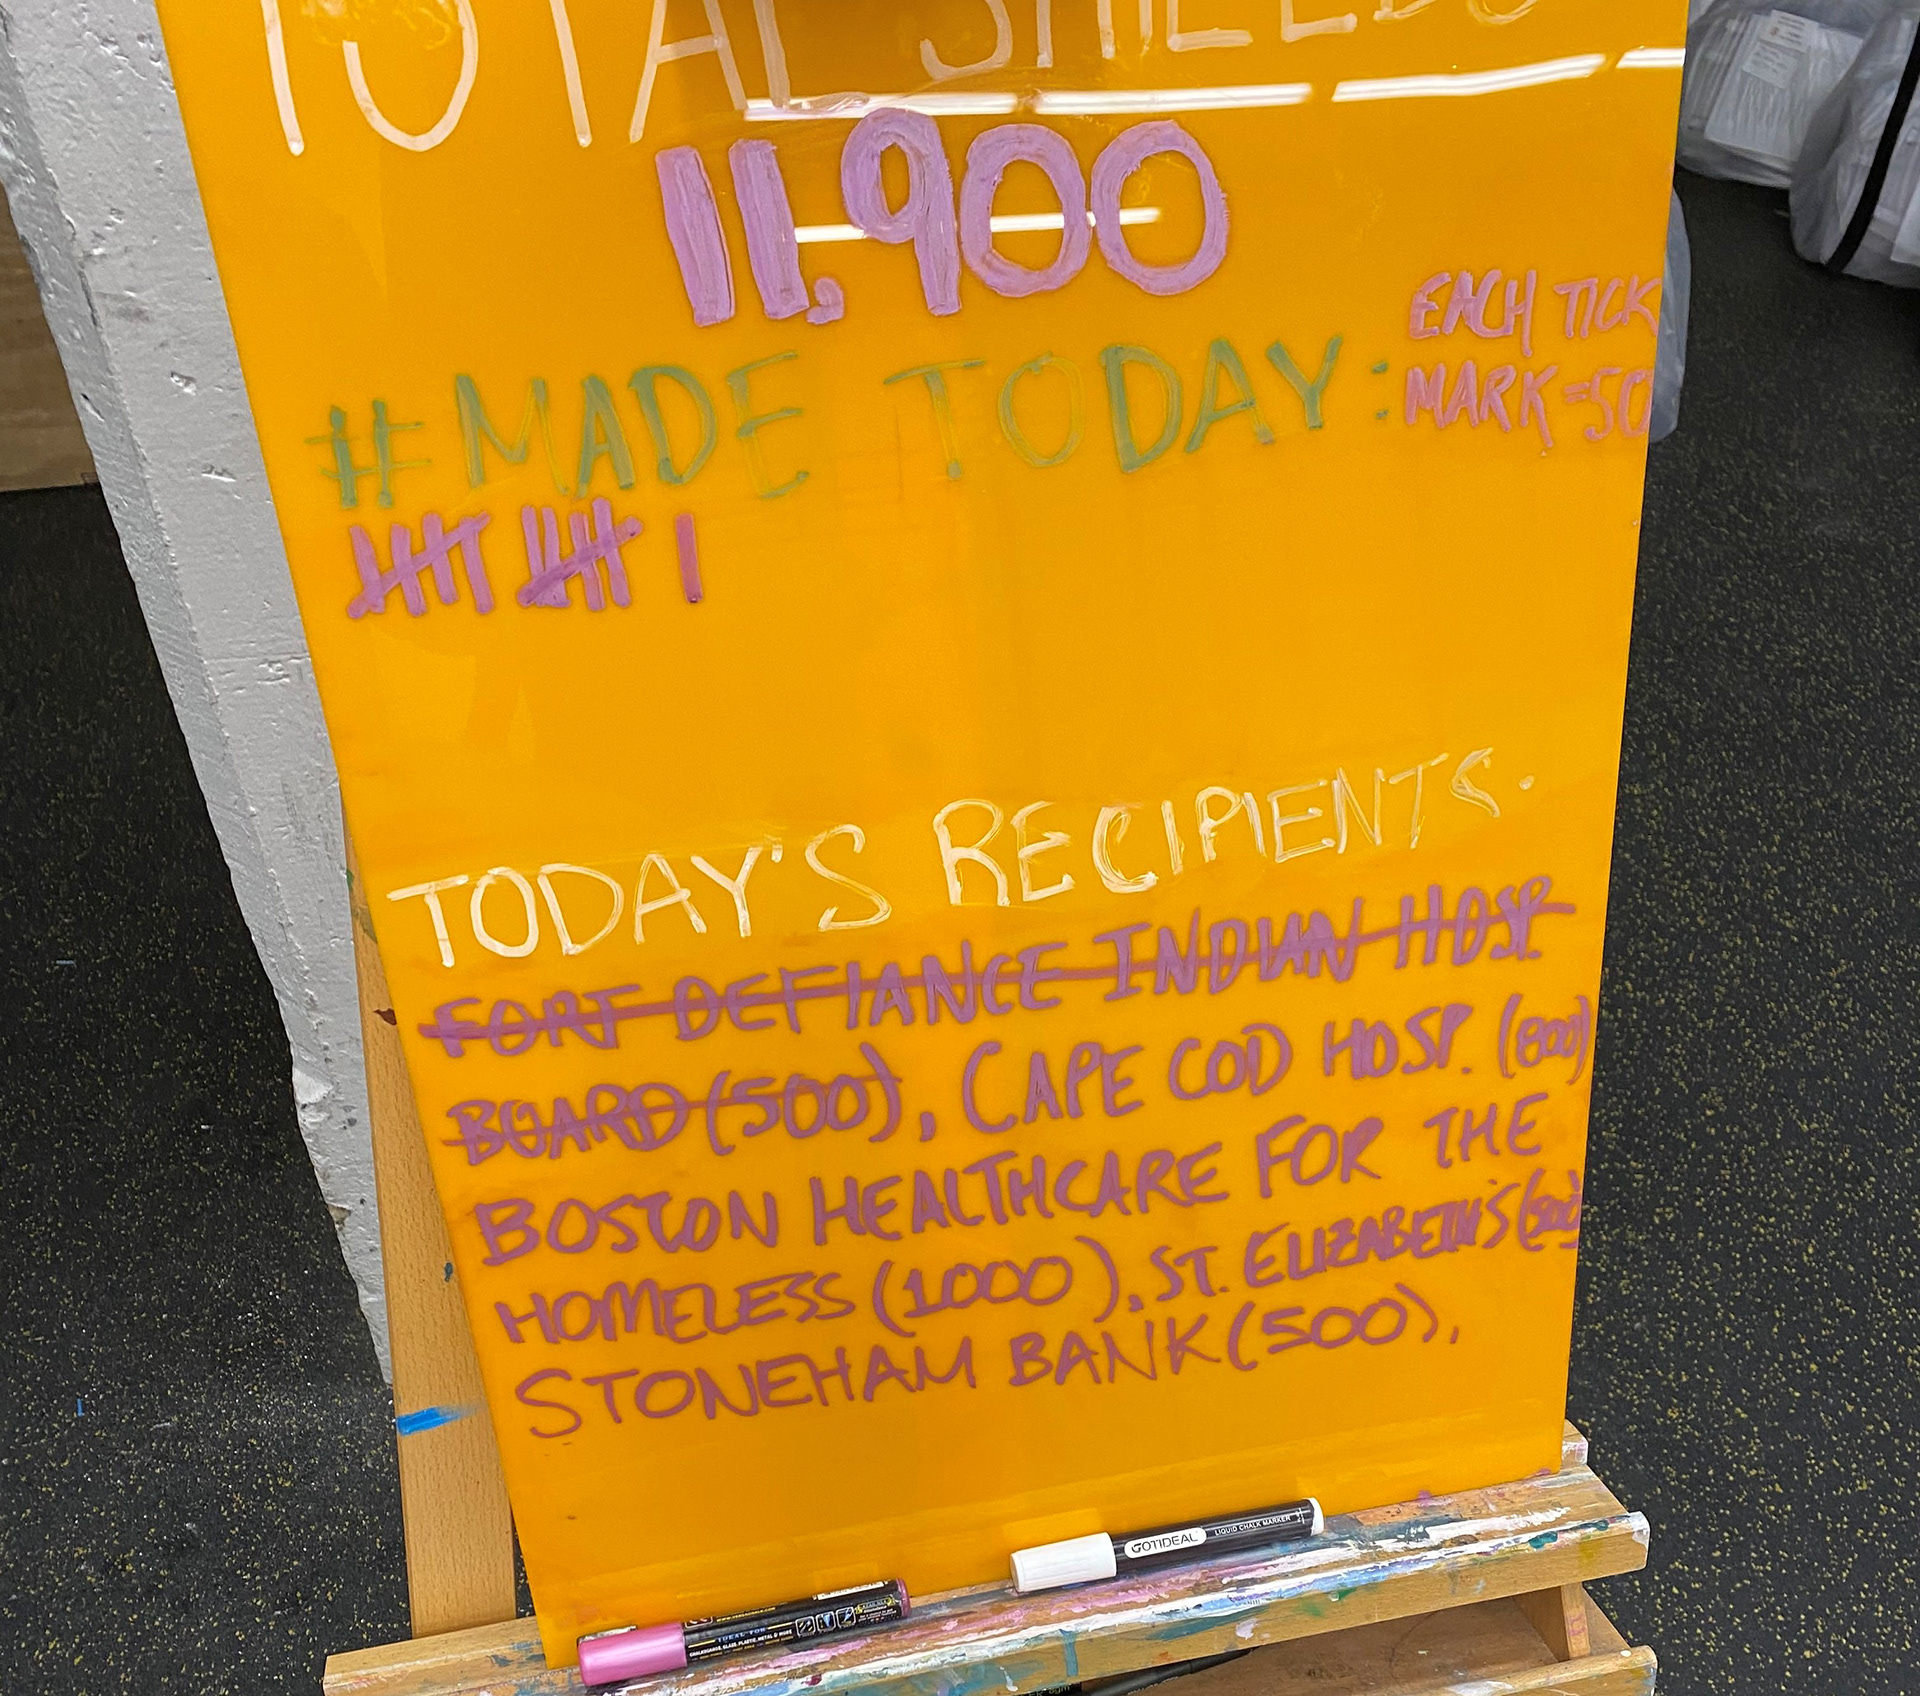 TOTAL SHIELDS
11,900
EACH TICK
MARK=50
#MADE TODAY:
TODAY'S RECIPIENTS.
FORT DEFIANCE INDIAN HOSP.
BOARD (500), CAPE COD HOSP. (800)
BOSTON HEALTHCARE FOR THE
HOMELESS (1000), ST. ELIZABETH'S
STONEHAM BANK (500),
GOTIDEAL LIQUID CHALK MARKER
IDEAL FOR